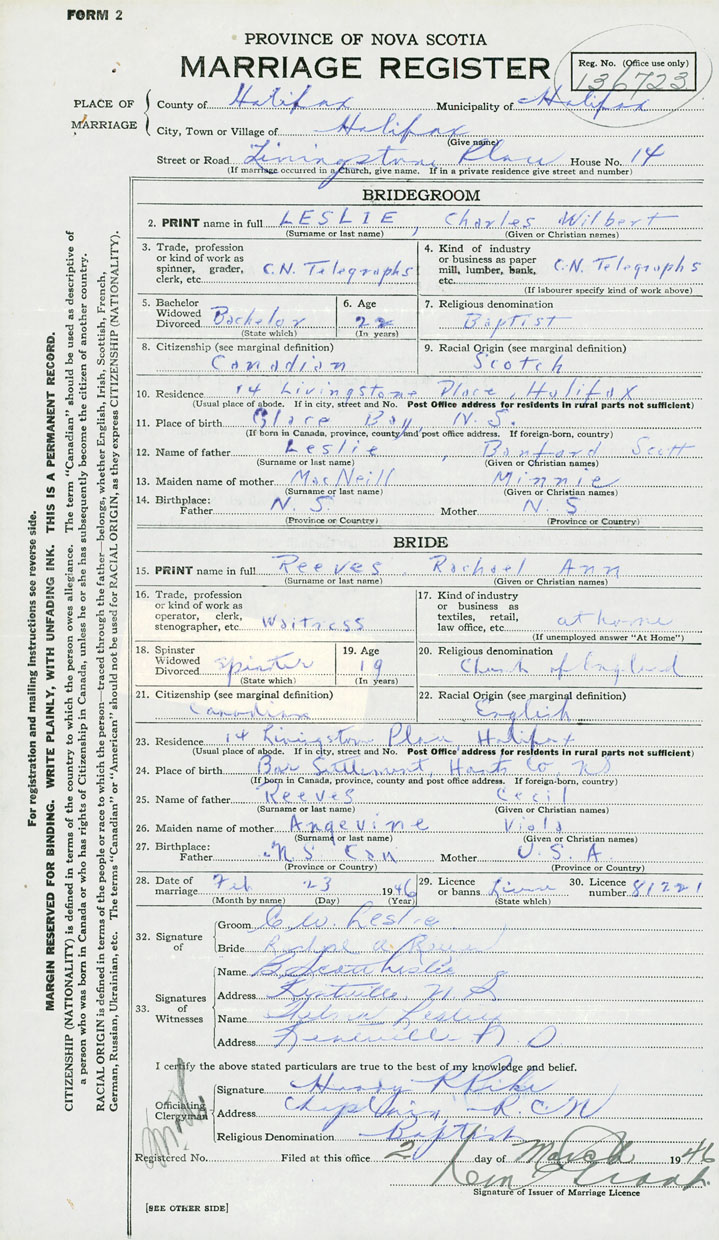 FORM 2
PROVINCE OF NOVA SCOTIA
MARRIAGE REGISTER
Reg. No. (Office use only)
136723
PLACE OF MARRIAGE
County of Halifax Municipality of Halifax
City, Town or Village of Halifax
(Give name)
Street or Road Livingstone Place House No. 14
(If marriage occurred in a Church, give name. If in a private residence give street and number)
BRIDEGROOM
2. PRINT name in full LESLIE, Charles Wilbert
(Surname or last name) (Given or Christian names)
3. Trade, profession or kind of work as spinner, grader, clerk, etc. C.N. Telegraphs
4. Kind of industry or business as paper mill, lumber, bank, etc. C.N. Telegraphs
(If labourer specify kind of work above)
5. Bachelor Widowed Divorced Bachelor
(State which)
6. Age 22
(In years)
7. Religious denomination
Baptist
8. Citizenship (see marginal definition)
Canadian
9. Racial Origin (see marginal definition)
Scotch
10. Residence 14 Livingstone Place, Halifax
(Usual place of abode. If in city, street and No. Post Office address for residents in rural parts not sufficient)
11. Place of birth Glace Bay, N.S.
(If born in Canada, province, county and post office address. If foreign-born, country)
12. Name of father Leslie, Banford Scott
(Surname or last name) (Given or Christian names)
13. Maiden name of mother MacNeill Minnie
(Surname or last name) (Given or Christian names)
14. Birthplace:
Father N.S. Mother N.S
(Province or Country) (Province or Country)
BRIDE
15. PRINT name in full Reeves, Rachael Ann
(Surname or last name) (Given or Christian names)
16. Trade, profession or kind of work as operator, clerk, stenographer, etc. Waitress
17. Kind of industry or business as textiles, retail, law office, etc. at home
(If unemployed answer "At Home")
18. Spinster Widowed Divorced Spinster
(State which)
19. Age 19
(In years)
20. Religious denomination
Church of England
21. Citizenship (see marginal definition)
Canadian
22. Racial Origin (see marginal definition)
English
23. Residence 14 Livingstone Place, Halifax
(Usual place of abode. If in city, street and No. Post Office address for residents in rural parts not sufficient)
24. Place of birth Settlement, Hants Co, NS
(If born in Canada, province, county and post office address. If foreign-born, country)
25. Name of father Reeves Cecil
(Surname or last name) (Given or Christian names)
26. Maiden name of mother Angevine Viola
(Surname or last name) (Given or Christian names)
27. Birthplace:
Father N.S. Can Mother U.S.A.
(Province or Country) (Province or Country)
28. Date of marriage Feb 23 1946
(Month by name) (Day) (Year)
29. Licence or banns
(State which)
30. Licence number 81221
32. Signature of
Groom C. W. Leslie
Bride
33. Signatures of Witnesses
Name B Scott Leslie
Address Kentville N S
Name
Address N S
I certify the above stated particulars are true to the best of my knowledge and belief.
Officiating Clergyman
Signature
Address Chaplain R.C.N
Religious Denomination Baptist
Registered No. Filed at this office 2 day of March 1946
Signature of Issuer of Marriage Licence
[SEE OTHER SIDE]
For registration and mailing instructions see reverse side.
MARGIN RESERVED FOR BINDING. WRITE PLAINLY, WITH UNFADING INK. THIS IS A PERMANENT RECORD.
CITIZENSHIP (NATIONALITY) is defined in terms of the country to which the person owes allegiance. The term "Canadian" should be used as descriptive of
a person who was born in Canada or who has rights of Citizenship in Canada, unless he or she has subsequently become the citizen of another country.
RACIAL ORIGIN is defined in terms of the people or race to which the person—traced through the father—belongs, whether English, Irish, Scottish, French,
German, Russian, Ukrainian, etc. The terms "Canadian" or "American" should not be used for RACIAL ORIGIN, as they express CITIZENSHIP (NATIONALITY).